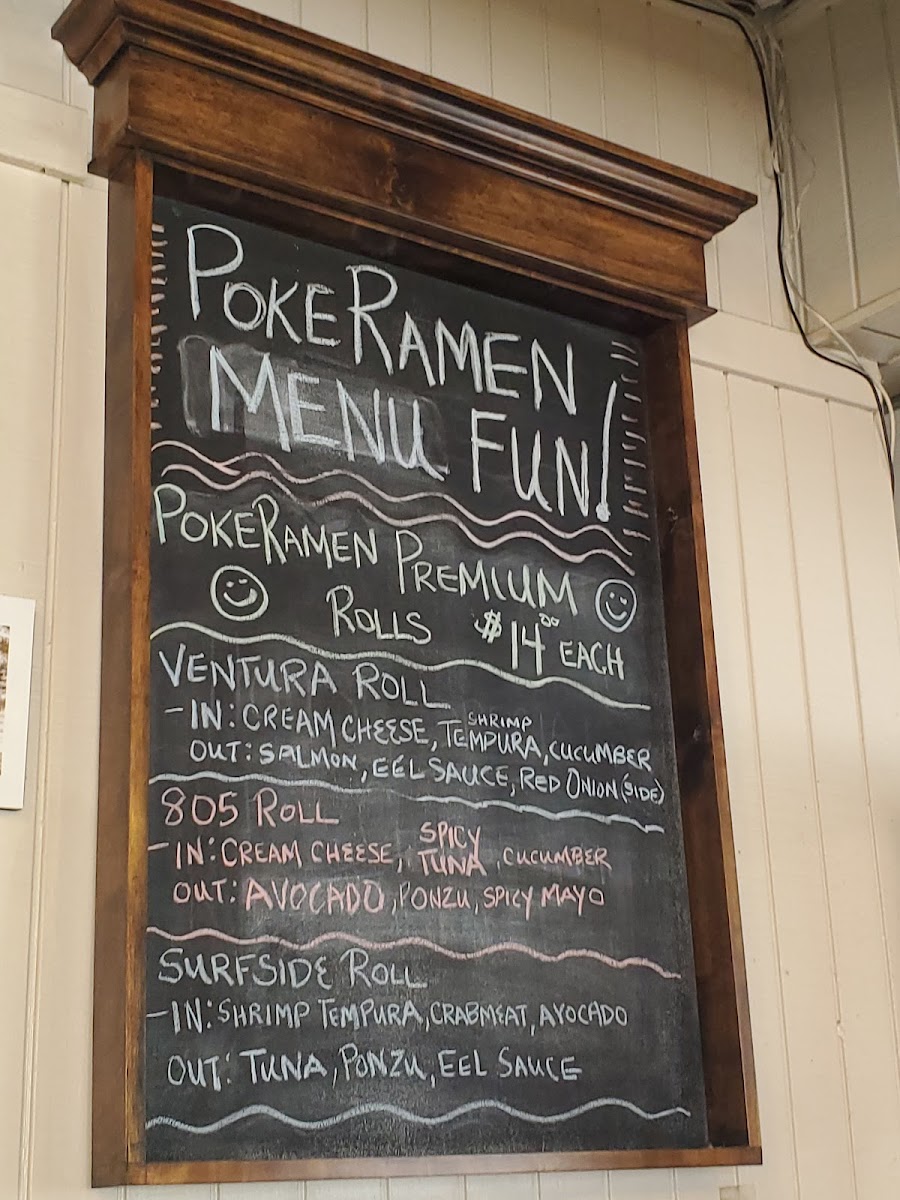 POKERAMEN
MENU FUN!
POKERAMEN PREMIUM
ROLLS $14.00 EACH
VENTURA ROLL
-IN: CREAM CHEESE, SHRIMP TEMPURA, CUCUMBER
OUT: SALMON, EEL SAUCE, RED ONION (SIDE)
805 ROLL
-IN: CREAM CHEESE, SPICY TUNA, CUCUMBER
OUT: AVOCADO, PONZU, SPICY MAYO
SURFSIDE ROLL
-IN: SHRIMP TEMPURA, CRABMEAT, AVOCADO
OUT: TUNA, PONZU, EEL SAUCE